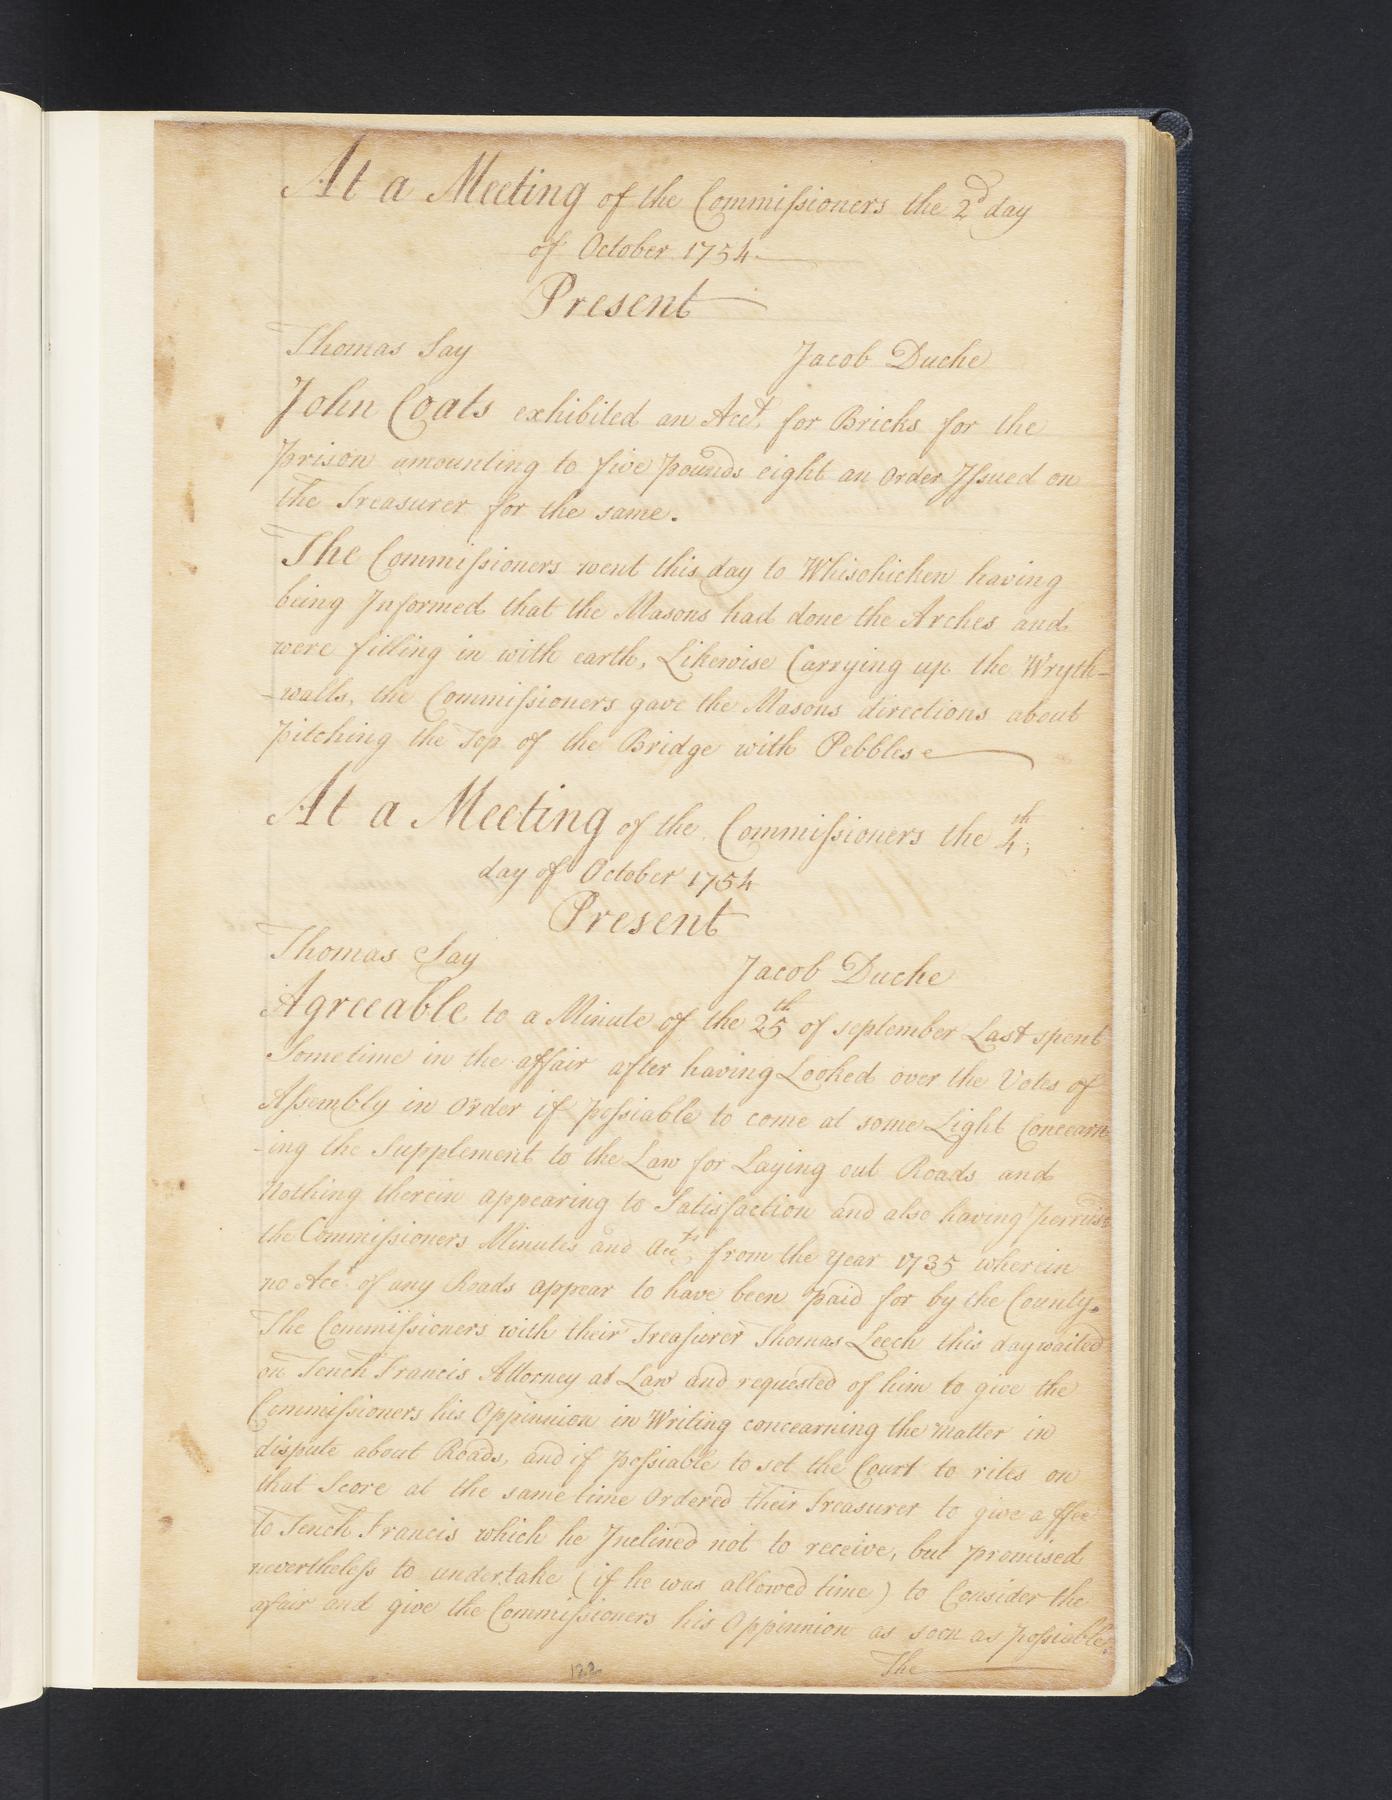 At a Meeting of the Commissioners the 2d day
of October 1754.
Present
Thomas Say Jacob Duche
John Coats exhibited an Acct. for Bricks for the
prison amounting to five pounds eight an order Issued on
the Treasurer for the same.
The Commissioners went this day to Whisohicken having
being Informed that the Masons had done the Arches and
were filling in with earth, Likewise Carrying up the Wryth-
-walls, the Commissioners gave the Masons directions about
pitching the Top of the Bridge with Pebbles
At a Meeting of the Commissioners the 4th,
day of October 1754
Present
Thomas Say Jacob Duche
Agreeable to a Minute of the 25th of september Last spent
Sometime in the affair after having Looked over the Votes of
Assembly in order if possiable to come at some Light Concearn
-ing the Supplement to the Law for Laying out Roads and
Nothing therein appearing to Satisfaction and also having perrus'd
the Commissioners Minutes and Accts. from the year 1735 wherein
no Acct. of any Roads appear to have been paid for by the County.
The Commissioners with their Treasurer Thomas Leech this day waited
on Tench Francis Attorney at Law and requested of him to give the
Commissioners his Oppinnion in Writing concearning the matter in
dispute about Roads, and if possiable to set the Court to rites on
that Score at the same time Ordered their Treasurer to give a ffee
to Tench Francis which he Inclined not to receive, but promised
nevertheless to undertake (if he was allowed time) to Consider the
afair and give the Commissioners his Oppinnion as soon as possiable.
122
The